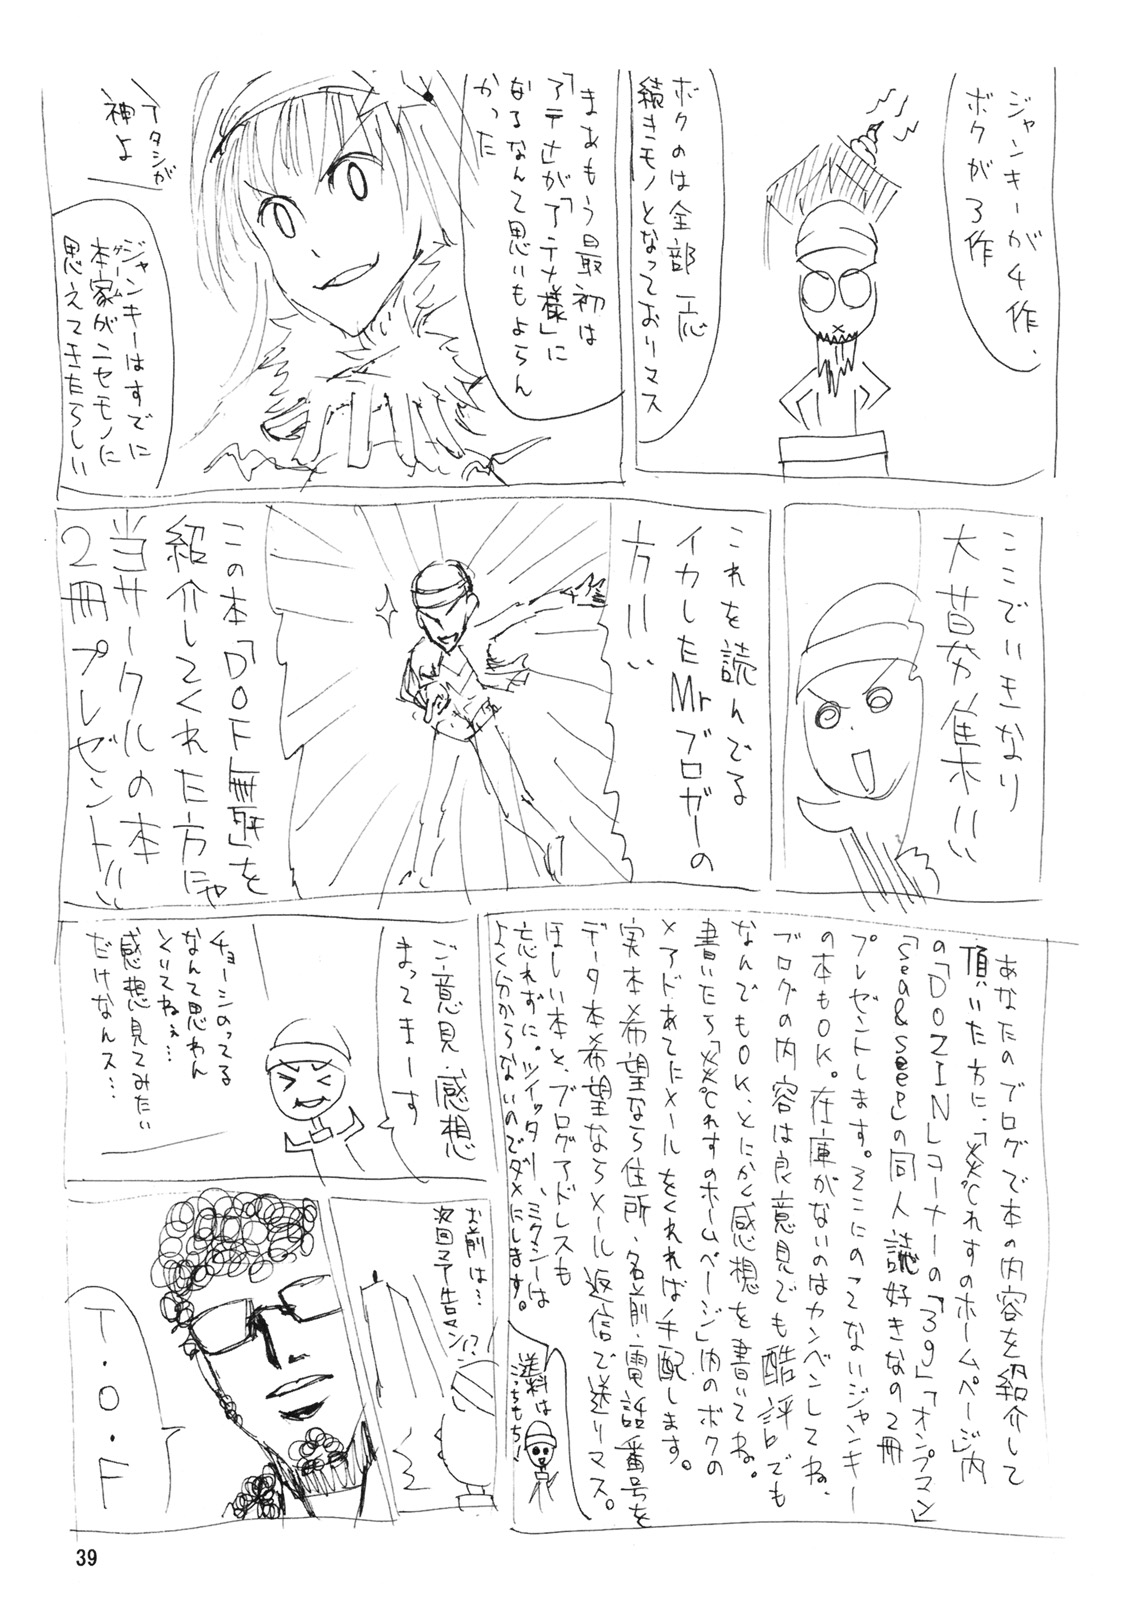 ジャンキーが4作、
ボクが3作
ボクのは全部一応
続きモノとなっておりマス
まあもう最初は
「アテナ」が「アテナ様」に
なるなんて思いもよらん
かった
アタシが
神よ
ジャンキーはすでに
本家がニセモノに
ゲーム
思えてきたらしい
ここでいきなり
大募集!!!
これを読んでる
イカしたMrブロガーの
方!!!
この本「DOF無双」を
紹介してくれた方にゃ
当サークルの本
2冊プレゼント!!
あなたのブログで本の内容を紹介して
頂いた方に、「災てれすのホームページ」内
の「DOZIN」コーナーの「39」「オンプマン」
「sea&seep」の同人誌好きなの2冊
プレゼントします。そこにのってないジャンキー
の本もOK。在庫がないのはカンベンしてね、
ブログの内容は良意見でも酷評でも
なんでもOK、とにかく感想を書いてね。
書いたら「災てれすのホームページ」内のボクの
メアドあてにメールをくれれば手配します。
実本希望なら住所・名前・電話番号を
データ本希望ならメール返信で送りマス。
ほしい本と、ブログアドレスも
忘れずに。ツイッター、ミクシーは
よく分からないのでダメにします。
送料は
こっちもち!
ご意見・感想
まってまーす
チョーシのってる
なんて思わん
といてねぇ…
感想見てみたい
だけなんス…
お前は…!?
次回予告マン
T・O・F